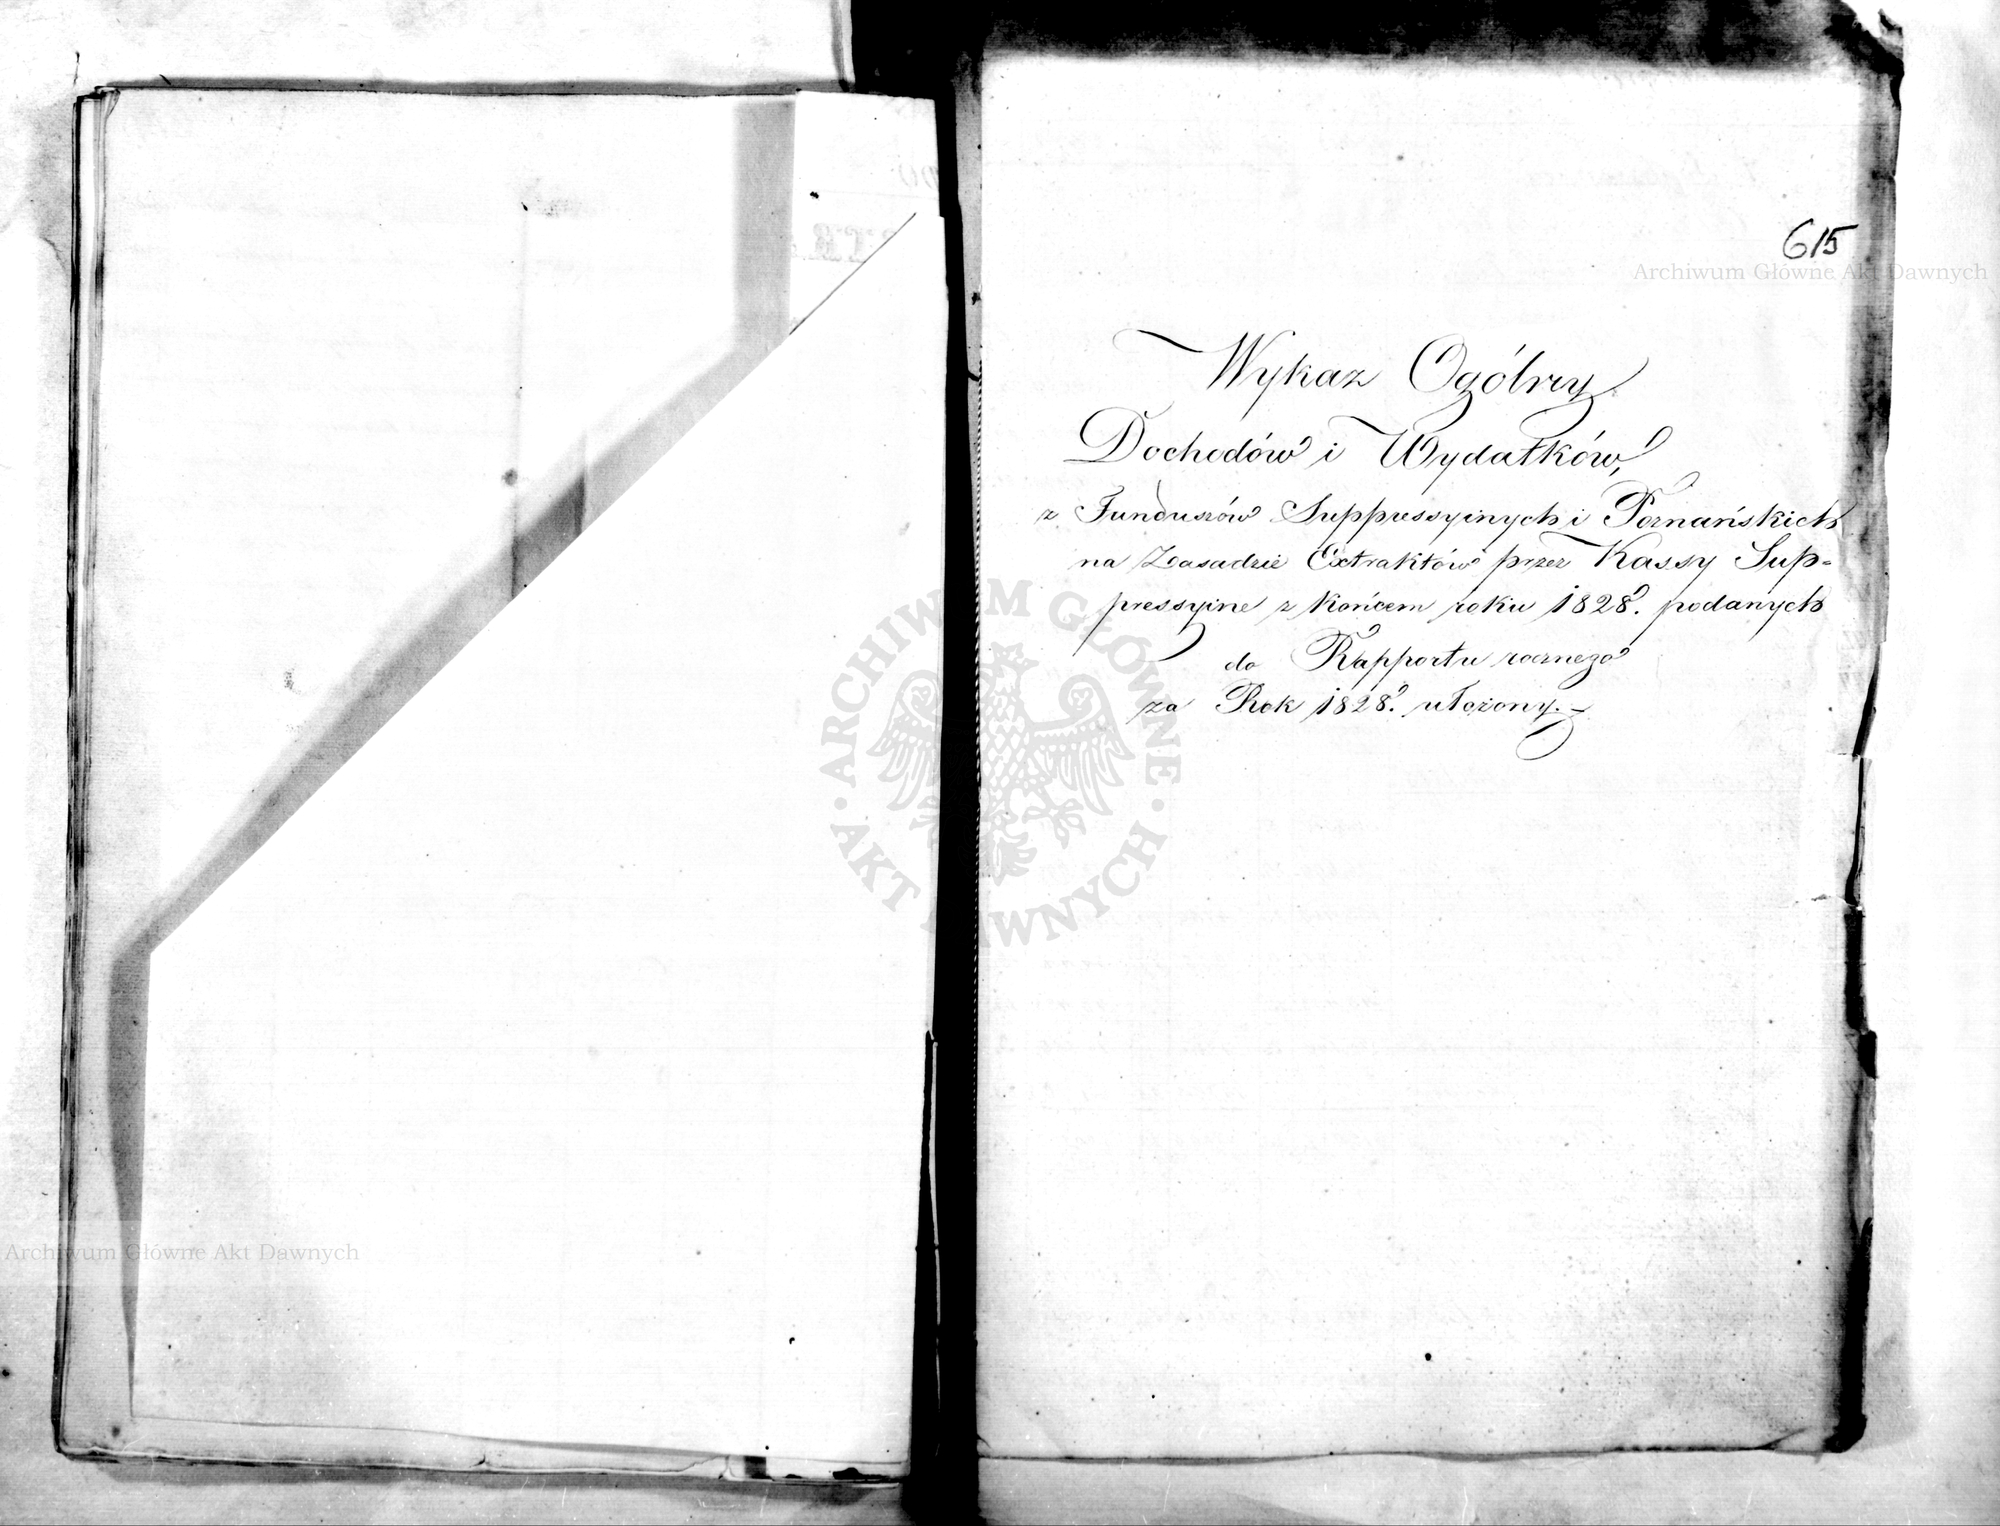 615
Archiwum Główne Akt Dawnych
Wykaz Ogólny
Dochodów i Wydatków,
z Funduszów Suppressyinych i Poznańskich
na Zasadzie Extraktów przez Kassy Sup=
pressyine z końcem roku 1828. podanych
do Rapportu rocznego
za Rok 1828. ułożony.
ARCHIWUM GŁÓWNE
AKT DAWNYCH
Archiwum Główne Akt Dawnych